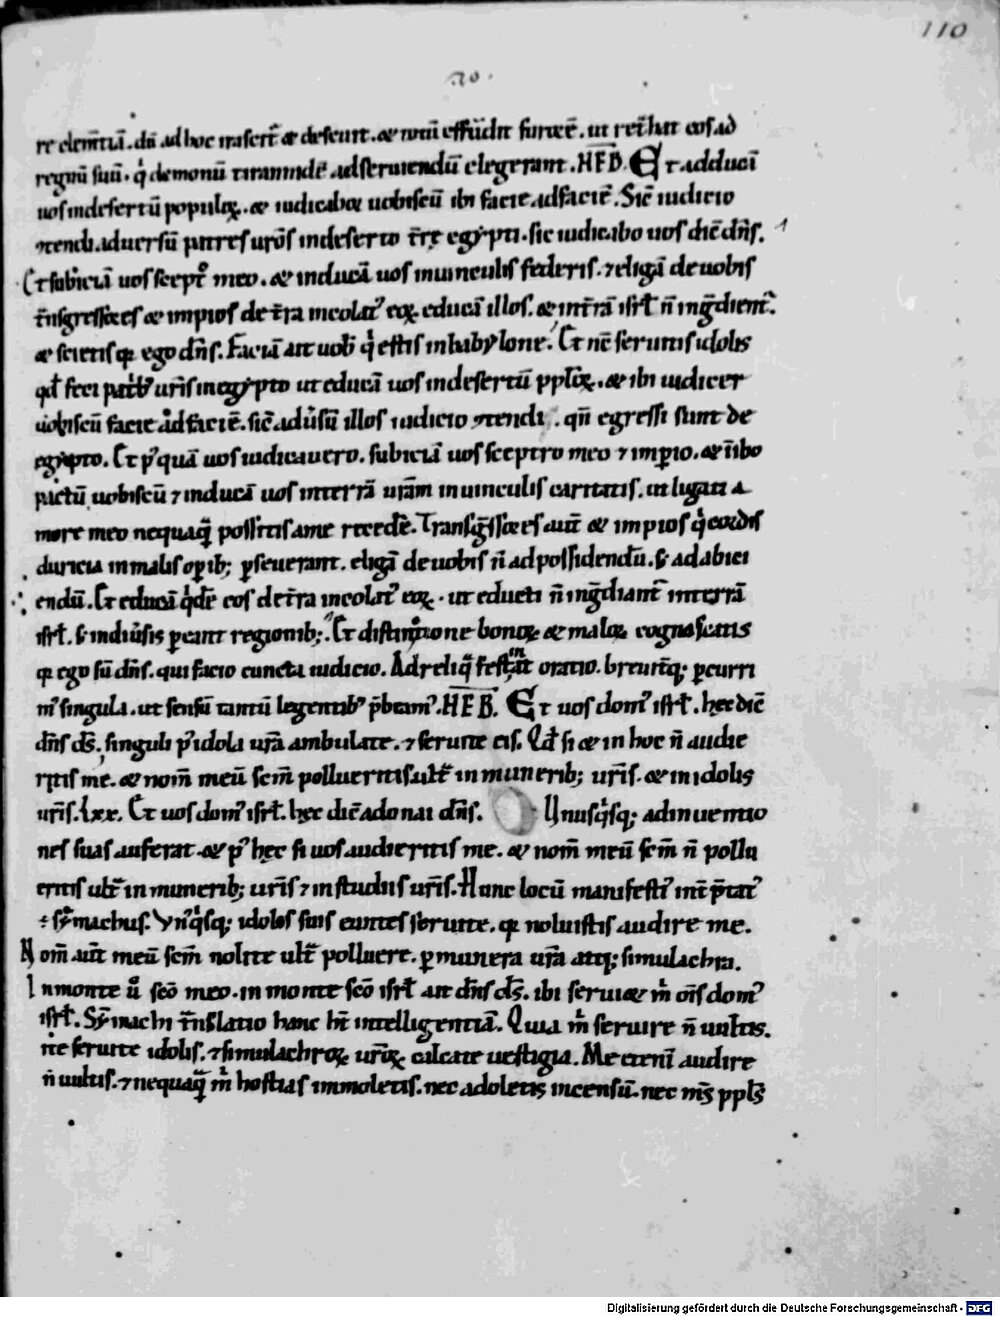 110
20.
re clem̄tiā. dū ad hoc miserꝉ & deseurt. & totū effūdit furorē. ut ret̄hat eos ad
regnū suū. q̇ demonū tirannidē. ad seruiendū elegerant. HEB. Et adducā
uos in desertū populoꝝ. & iudicabor uobiscū ibi facie ad faciē. Sic̄ iudicio
ꝯtendi. aduersū patres ur̄os in deserto t̄rę egypti. sic iudicabo uos dic̄ dn̄s.
Et subiciā uos sceptꝛ̊ meo. & inducā uos in uinculis foederis. ⁊ eligā de uobis
t̄nsgressores & impios de t̄ra incolatꝰ eoꝝ. educā illos. & int̄rā isrł n̄ ingͣdientꝰ.
& scietis qꝫ ego dn̄s. Faciā aut̄ uob̄ q̇ estis in babylone. Et nc̄ seruitis idolis
qd̄ feci patꝛ̄bꝰ ur̄is in egypto ut educā uos in desertū ppłoꝝ. & ibi iudicer
uobiscū facie ad faciē. sic̄ adūsū illos iudicio ꝯtendi. qn̄ egressi sunt de
egypto. Et pꝰquā uos iudicauero. subiciā uos sceptro meo ⁊ imꝑio. & inibo
pactū uobiscū ⁊ inducā uos in terrā ur̄am in uinculis caritatis. ut ligati a
more meo nequaqͣ possitis a me recedē. Transgͣssores aut̄ & impios q̇ cordis
duricia in malis oꝑib; ꝑseuerant. eligā de uobis n̄ ad possidendū. sꝫ ad abici
endū. Et educā q̇dē eos de t̄ra incolatꝰ eoꝝ. ut educti n̄ ingͣdiant̄ in terrā
isrł. sꝫ in diūsis ꝑeant regionib;. Et distinctione bonoꝝ & maloꝝ cognoscatis
qꝫ ego sū dn̄s. qui facio cuncta iudicio. Ad reliqͣ festinat oratio. breuit̄q; ꝑcurri
mꝰ singula. ut sensū tantū legentibꝰ p̄beamꝰ. HEB. Et uos domꝰ isrł. hęc dic̄
dn̄s ds̄. singuli pꝰ idola ur̄a ambulate. ⁊ seruite eis. Qd̄ si & in hoc n̄ audie
ritis me. & nom̄ meū scm̄ polluertis ult̄ in munerib; ur̄is. & in idolis
ur̄is. Lxx. Et uos domꝰ isrł. hęc dic̄ adonai dn̄s. Unusqͥsq; adinuentio
nes suas auferat. & pꝰ hęc si uos audieritis me. & nom̄ meū scm̄ n̄ pollu
eritis ult̄ in munerib; ur̄is ⁊ in studiis ur̄is. Hunc locū manifestiꝰ int̄p̄tatꝰ
÷ sȳmachus. Vnꝰqͥsq; idolis suis euntes seruite. qꝫ noluistis audire me.
Nom̄ aut̄ meū scm̄ nolite ult̄ polluere. ꝑ munera ur̄a atq; simulachra.
In monte u̇ sc̄o meo. in monte sc̄o isrł ait dn̄s ds̄. ibi seruiet m̄ om̄s domꝰ
isrł. Sȳmachi t̄nslatio hanc ht̄ intelligentiā. Quia m̄ seruire n̄ uultis.
ite seruite idolis. ⁊ simulachroꝝ ur̄oꝝ calcate uestigia. Me eteni audire
n̄ uultis. ⁊ nequaqͣ m̄ hostias immoletis. nec adoletis incensū. nec ms̄ ppłs
Digitalisierung gefördert durch die Deutsche Forschungsgemeinschaft - DFG